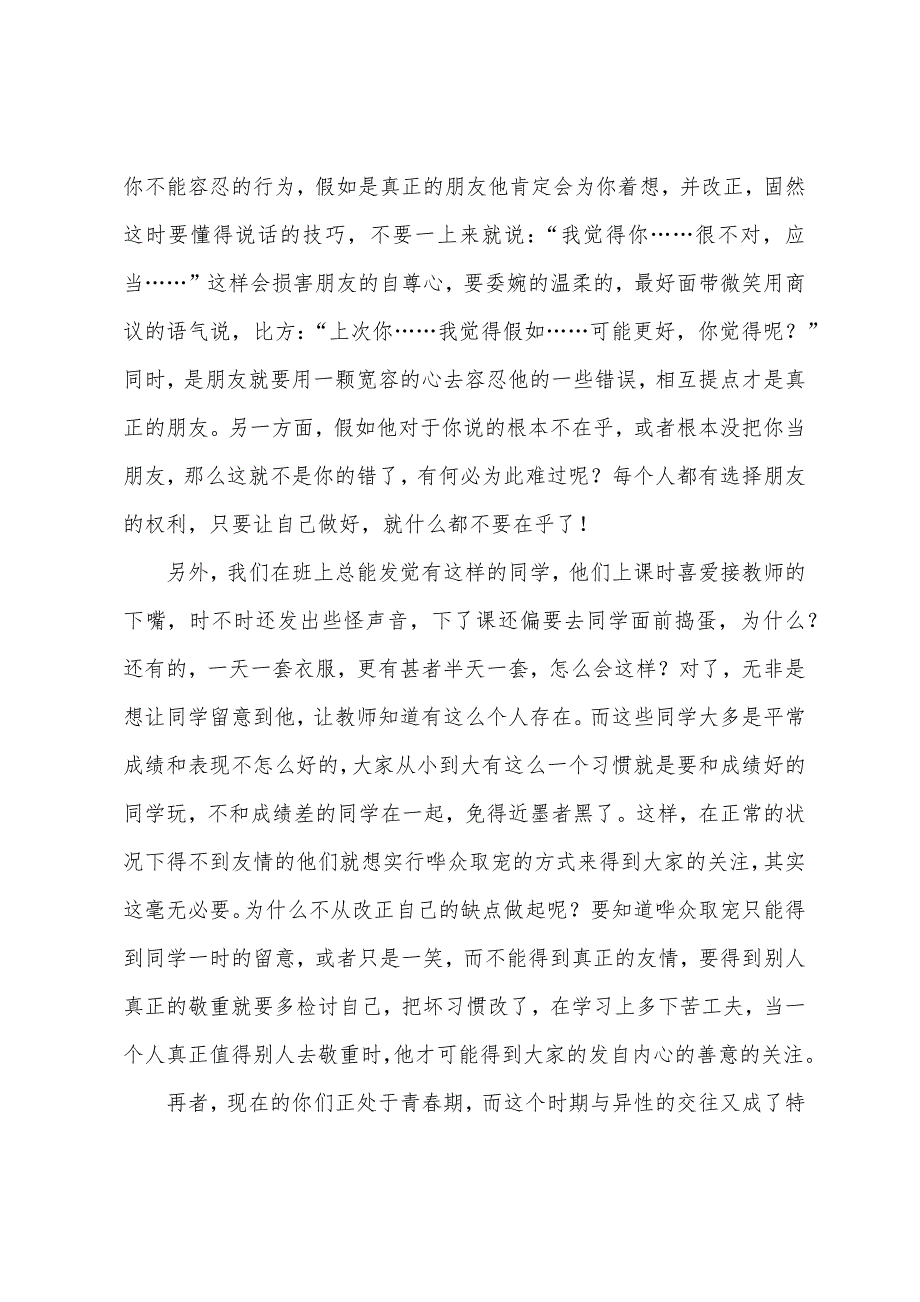 你不能容忍的行为，假如是真正的朋友他肯定会为你着想，并改正，固然
这时要懂得说话的技巧，不要一上来就说：“我觉得你……很不对，应
当……”这样会损害朋友的自尊心，要委婉的温柔的，最好面带微笑用商
议的语气说，比方：“上次你……我觉得假如……可能更好，你觉得呢？”
同时，是朋友就要用一颗宽容的心去容忍他的一些错误，相互提点才是真
正的朋友。另一方面，假如他对于你说的根本不在乎，或者根本没把你当
朋友，那么这就不是你的错了，有何必为此难过呢？每个人都有选择朋友
的权利，只要让自己做好，就什么都不要在乎了！
另外，我们在班上总能发觉有这样的同学，他们上课时喜爱接教师的
下嘴，时不时还发出些怪声音，下了课还偏要去同学面前捣蛋，为什么？
还有的，一天一套衣服，更有甚者半天一套，怎么会这样？对了，无非是
想让同学留意到他，让教师知道有这么个人存在。而这些同学大多是平常
成绩和表现不怎么好的，大家从小到大有这么一个习惯就是要和成绩好的
同学玩，不和成绩差的同学在一起，免得近墨者黑了。这样，在正常的状
况下得不到友情的他们就想实行哗众取宠的方式来得到大家的关注，其实
这毫无必要。为什么不从改正自己的缺点做起呢？要知道哗众取宠只能得
到同学一时的留意，或者只是一笑，而不能得到真正的友情，要得到别人
真正的敬重就要多检讨自己，把坏习惯改了，在学习上多下苦工夫，当一
个人真正值得别人去敬重时，他才可能得到大家的发自内心的善意的关注。
再者，现在的你们正处于青春期，而这个时期与异性的交往又成了特